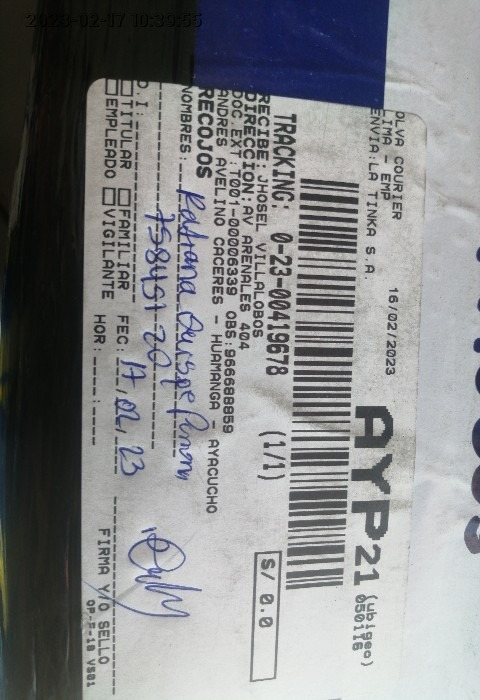 2023-02-17 10:39:55
OLVA COURIER
LIMA - EMP
ENVIA:LA TINKA S.A.
16/02/2023
AYP21
(ubigeo)
050116
TRACKING: 0-23-00419678 (1/1)
S/ 0.0
RECIBE: JHOSEL VILLALOBOS
DIRECCION:AV ARENALES 404
DOC.EXT:T001-00006339 OBS:966688859
ANDRES AVELINO CACERES - HUAMANGA - AYACUCHO
RECOJOS
NOMBRES:
D.I:
TITULAR FAMILIAR FEC: 17/02/23
EMPLEADO VIGILANTE HOR:
FIRMA Y/O SELLO
OP-F-18 VS01